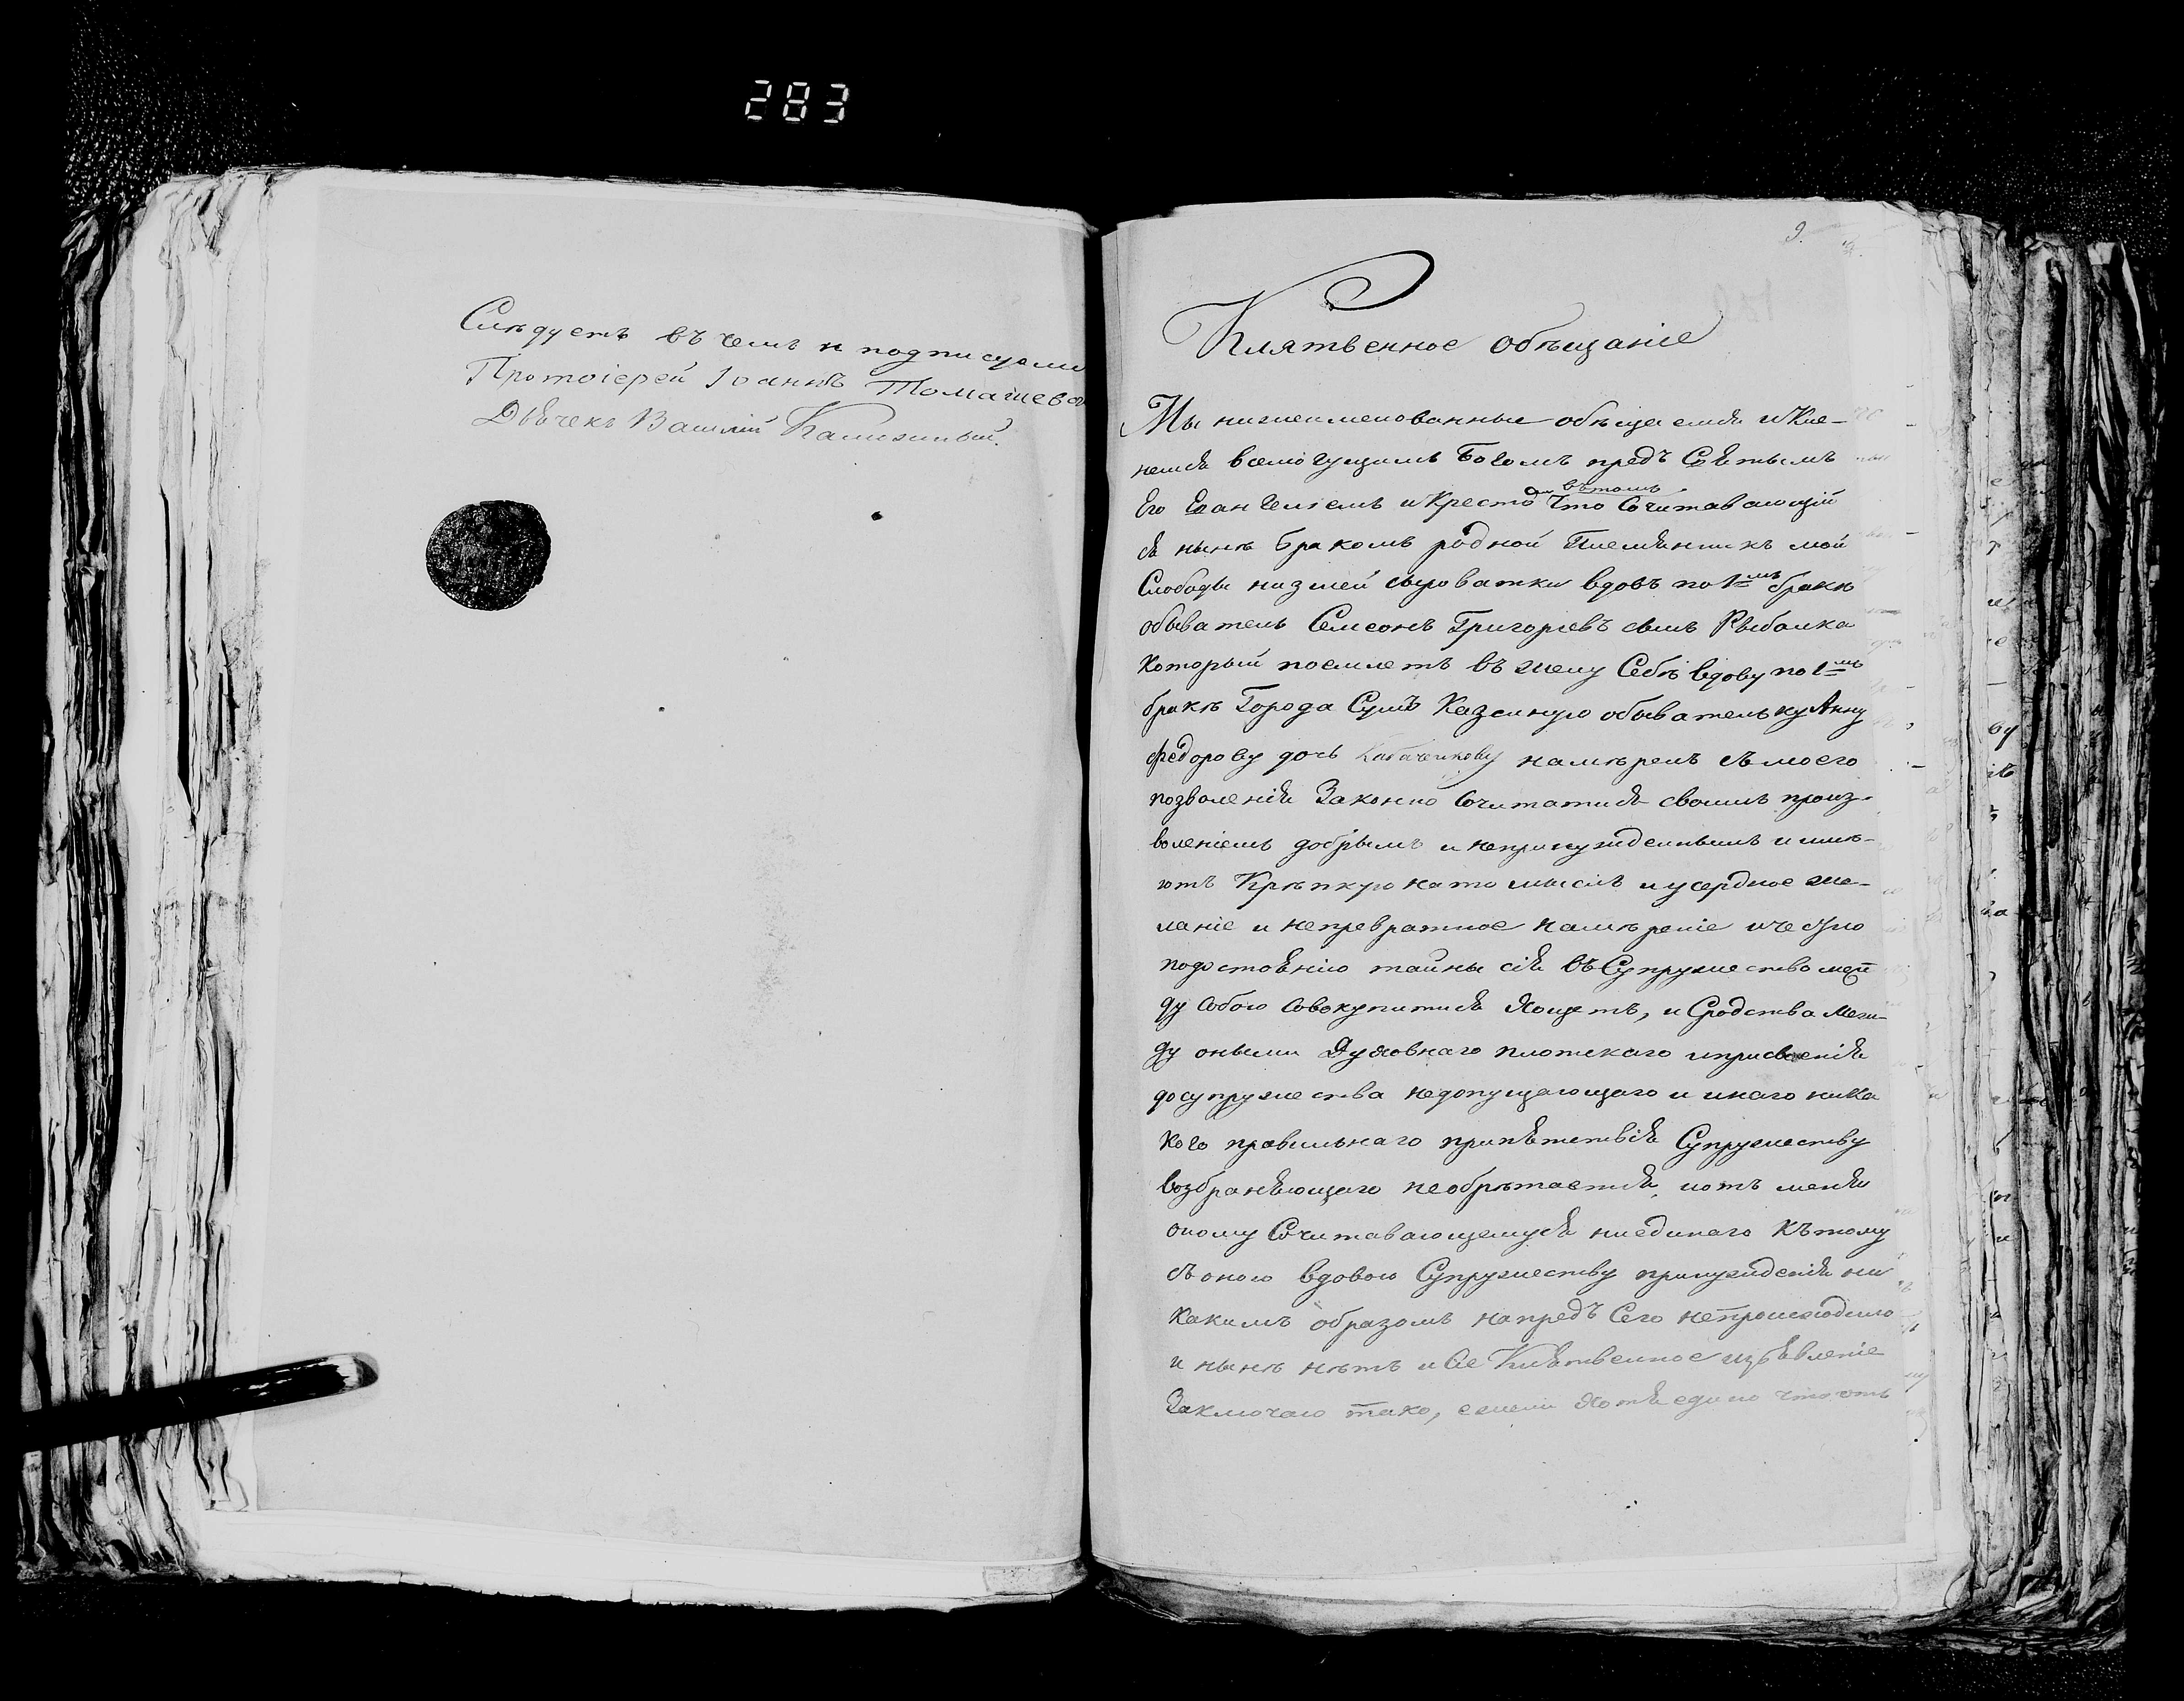 283
Слѣдуетъ въ чемъ и подписуемс
Протоіерей Іоаннъ Томашевс
Дьячекъ Василій
9.
Клятвенное обѣщаніе
Мы нижеименованные обѣщаемся и Кле-
немся всемогущимъ Богомъ предъ Святымъ
Его Еvангелїемъ и Крестомъ въ томъ Что Сочитавающій
ся нынѣ бракомъ родной Племянникъ мой
Слободы низшей сыроватки вдовъ по 1мъ бракѣ
обыватель Семсонъ Григоріевъ сынъ Рыбалка
который поемлетъ въ жену Себѣ вдову по 1мъ
бракѣ Города Сумъ Казенную обывательку Анну
федорову дочь намѣренъ съ моего
позволенія Законно Сочитатися своимъ произ-
воленіемъ добрымъ и непринужденнымъ и имѣ-
ютъ Крѣпкую на то мысль и усердное же-
ланіе и непревратное намѣреніе и честно
по достоянію тайны сія въ Супружество меж
ду Собою Совокупитися Хощетъ, и Сродства Меж-
ду оными Духовнаго плотскаго и присвоенія
до супружества недопущающаго и инаго ника
кого правильнаго припятствія Супружеству
возбраняющаго необрѣтается, и отъ меня
оному Сочитавающемуся ниединаго Къ тому
съ оною вдовою Супружеству принужденія ни
какимъ образомъ напредъ Сего непроисходило
и нынѣ нѣтъ и Сіе Клятвенное изъявленіе
Заключаю тако, ежели Хотя едино что отъ